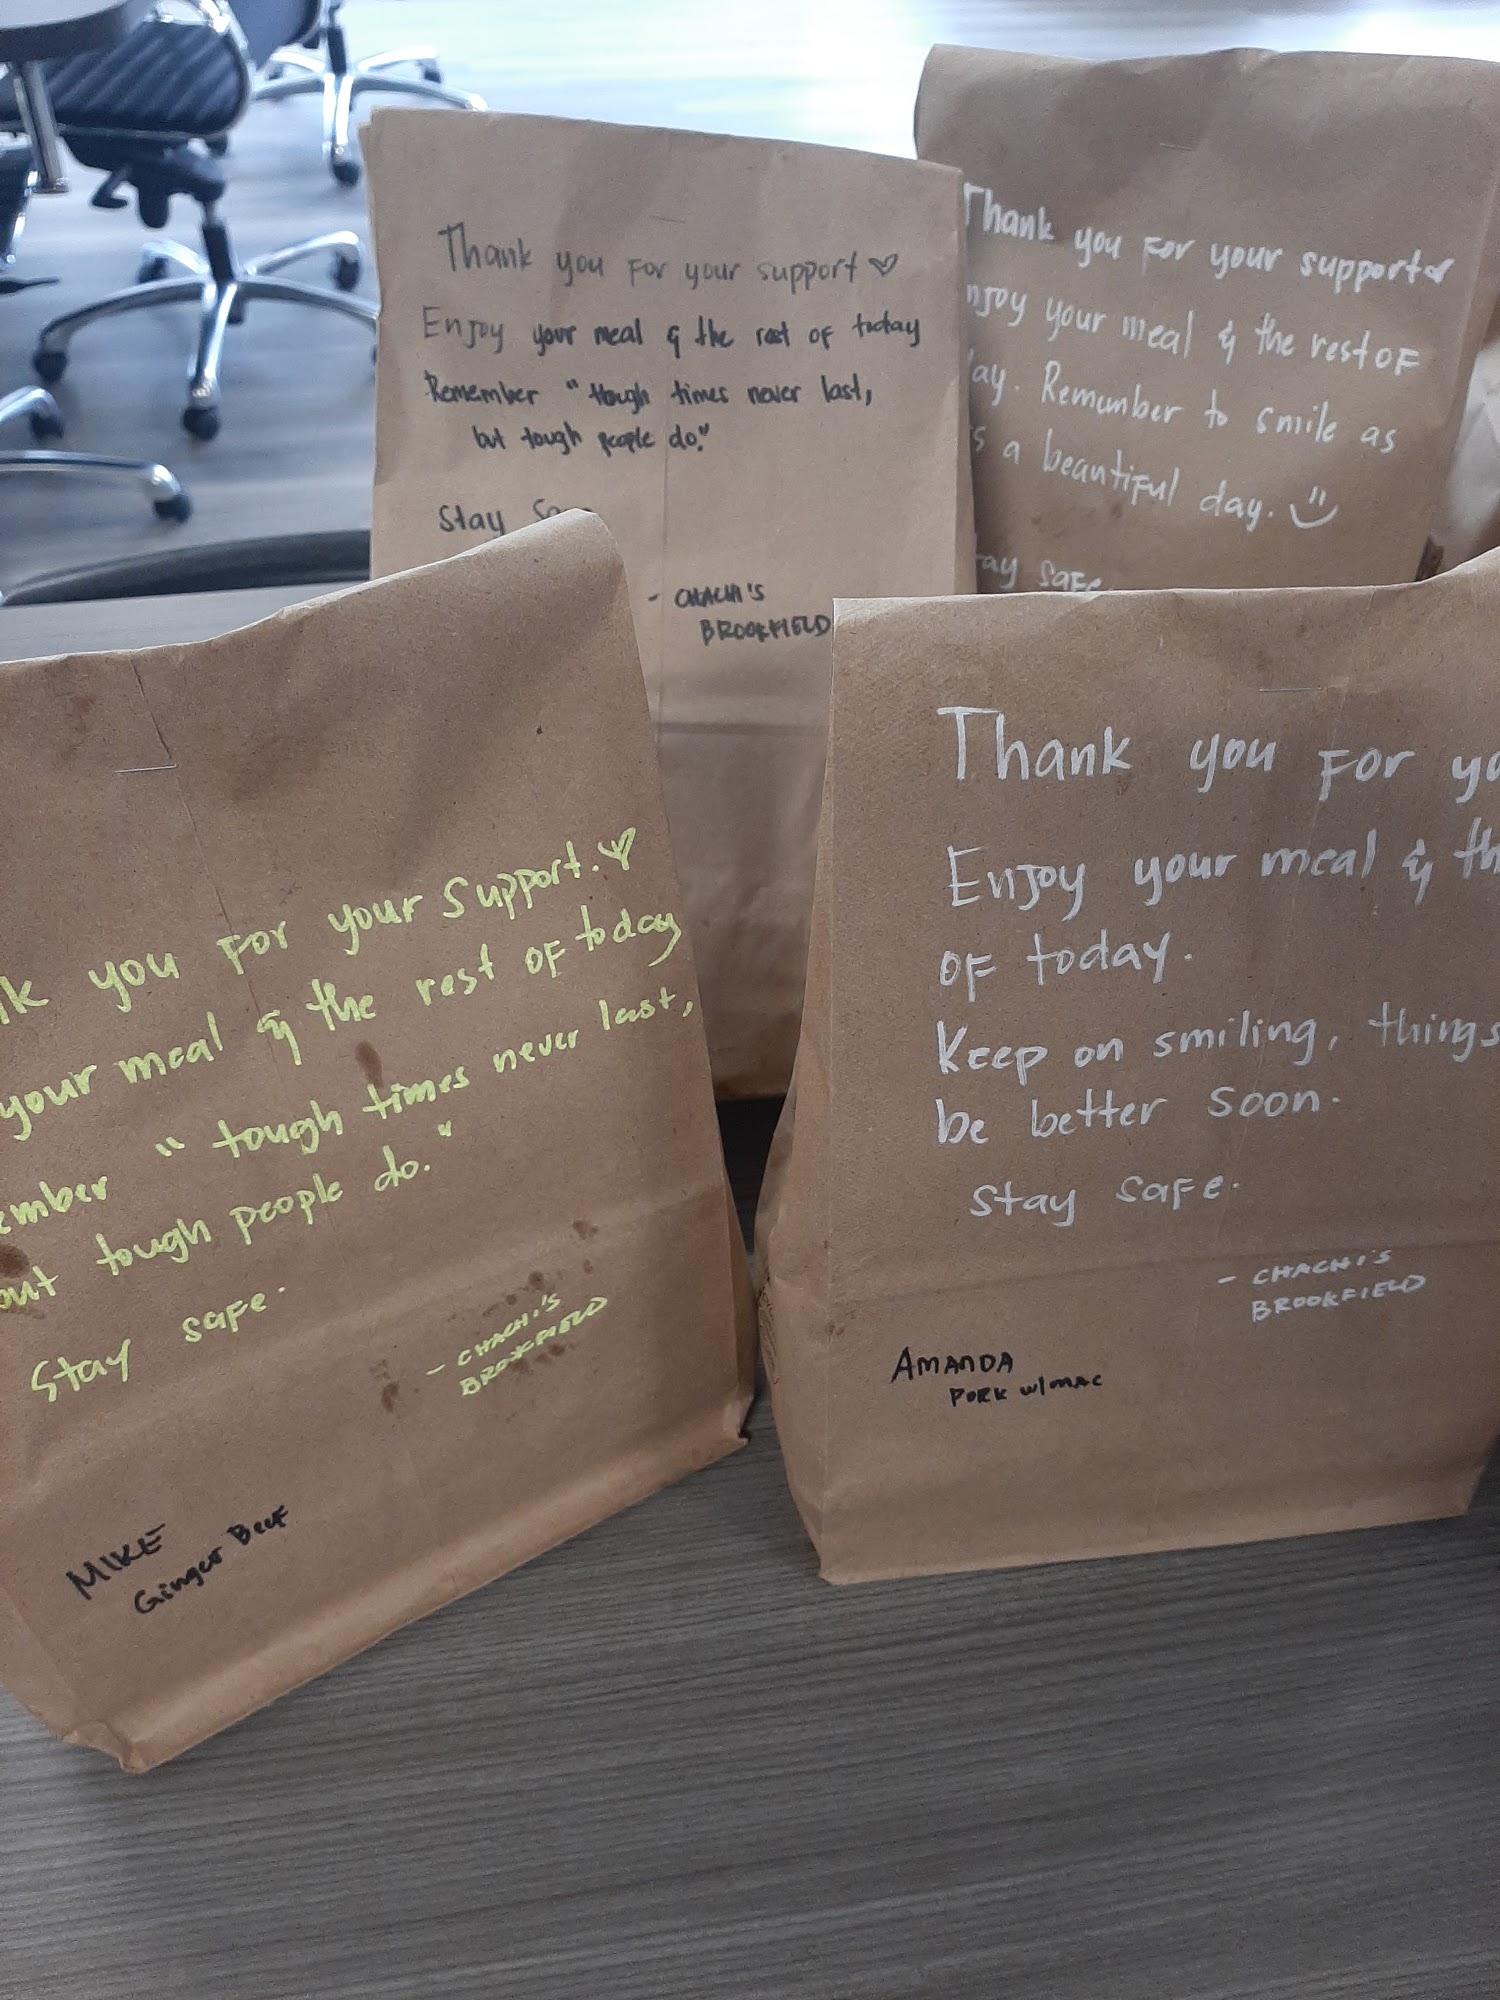 Thank you For your support
Enjoy your meal & the rest of today
Remember "tough times never last,
but tough people do."
Stay
- CHACHI'S
BROOKFIELD
Thank you For your support
njoy your meal & the rest OF
ay. Remember to smile as
s a beautiful day.
tay safe
k you For your support.
your meal & the rest of today
ember "tough times never last,
out tough people do."
Stay safe.
- CHACHI'S
BROOKFIELD
MIKE
Ginger Beef
Thank you For yo
Enjoy your meal & th
of today.
Keep on smiling, things
be better soon.
Stay safe.
- CHACHI'S
BROOKFIELD
AMANDA
PORK w/MAC